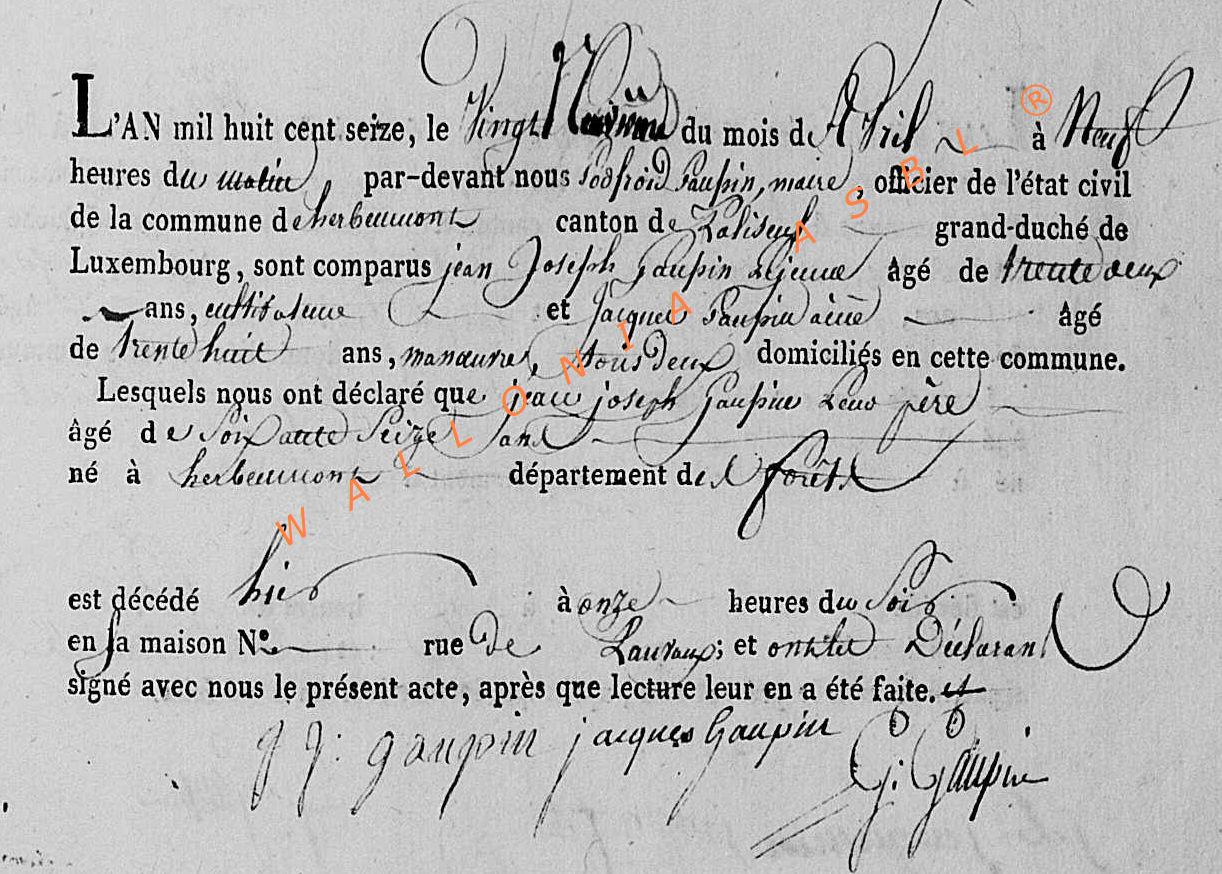 L'AN mil huit cent seize, le Vingt Neuf du mois d'Avril à Neuf
heures du matin, par-devant nous Godfroid Gaupin, maire, officier de l'état civil
de la commune de herbeumont canton de Paliseul grand-duché de
Luxembourg, sont comparus jean Joseph Gaupin Lejeune âgé de trente deux
ans, cultivateur et Jacques Gaupin ainé âgé
de trente huit ans, manœuvre, tous deux domiciliés en cette commune.
Lesquels nous ont déclaré que jean joseph Gaupin Leur père
âgé de Soixante Seize ans
né à herbeumont département des forêts
est décédé hier à onze heures du Soir
en sa maison N° rue de Lauvaux; et ont les Déclarans
signé avec nous le présent acte, après que lecture leur en a été faite.
J J: gaupin jacques Gaupin G: Gaupin
WALLONIA ASBL ®